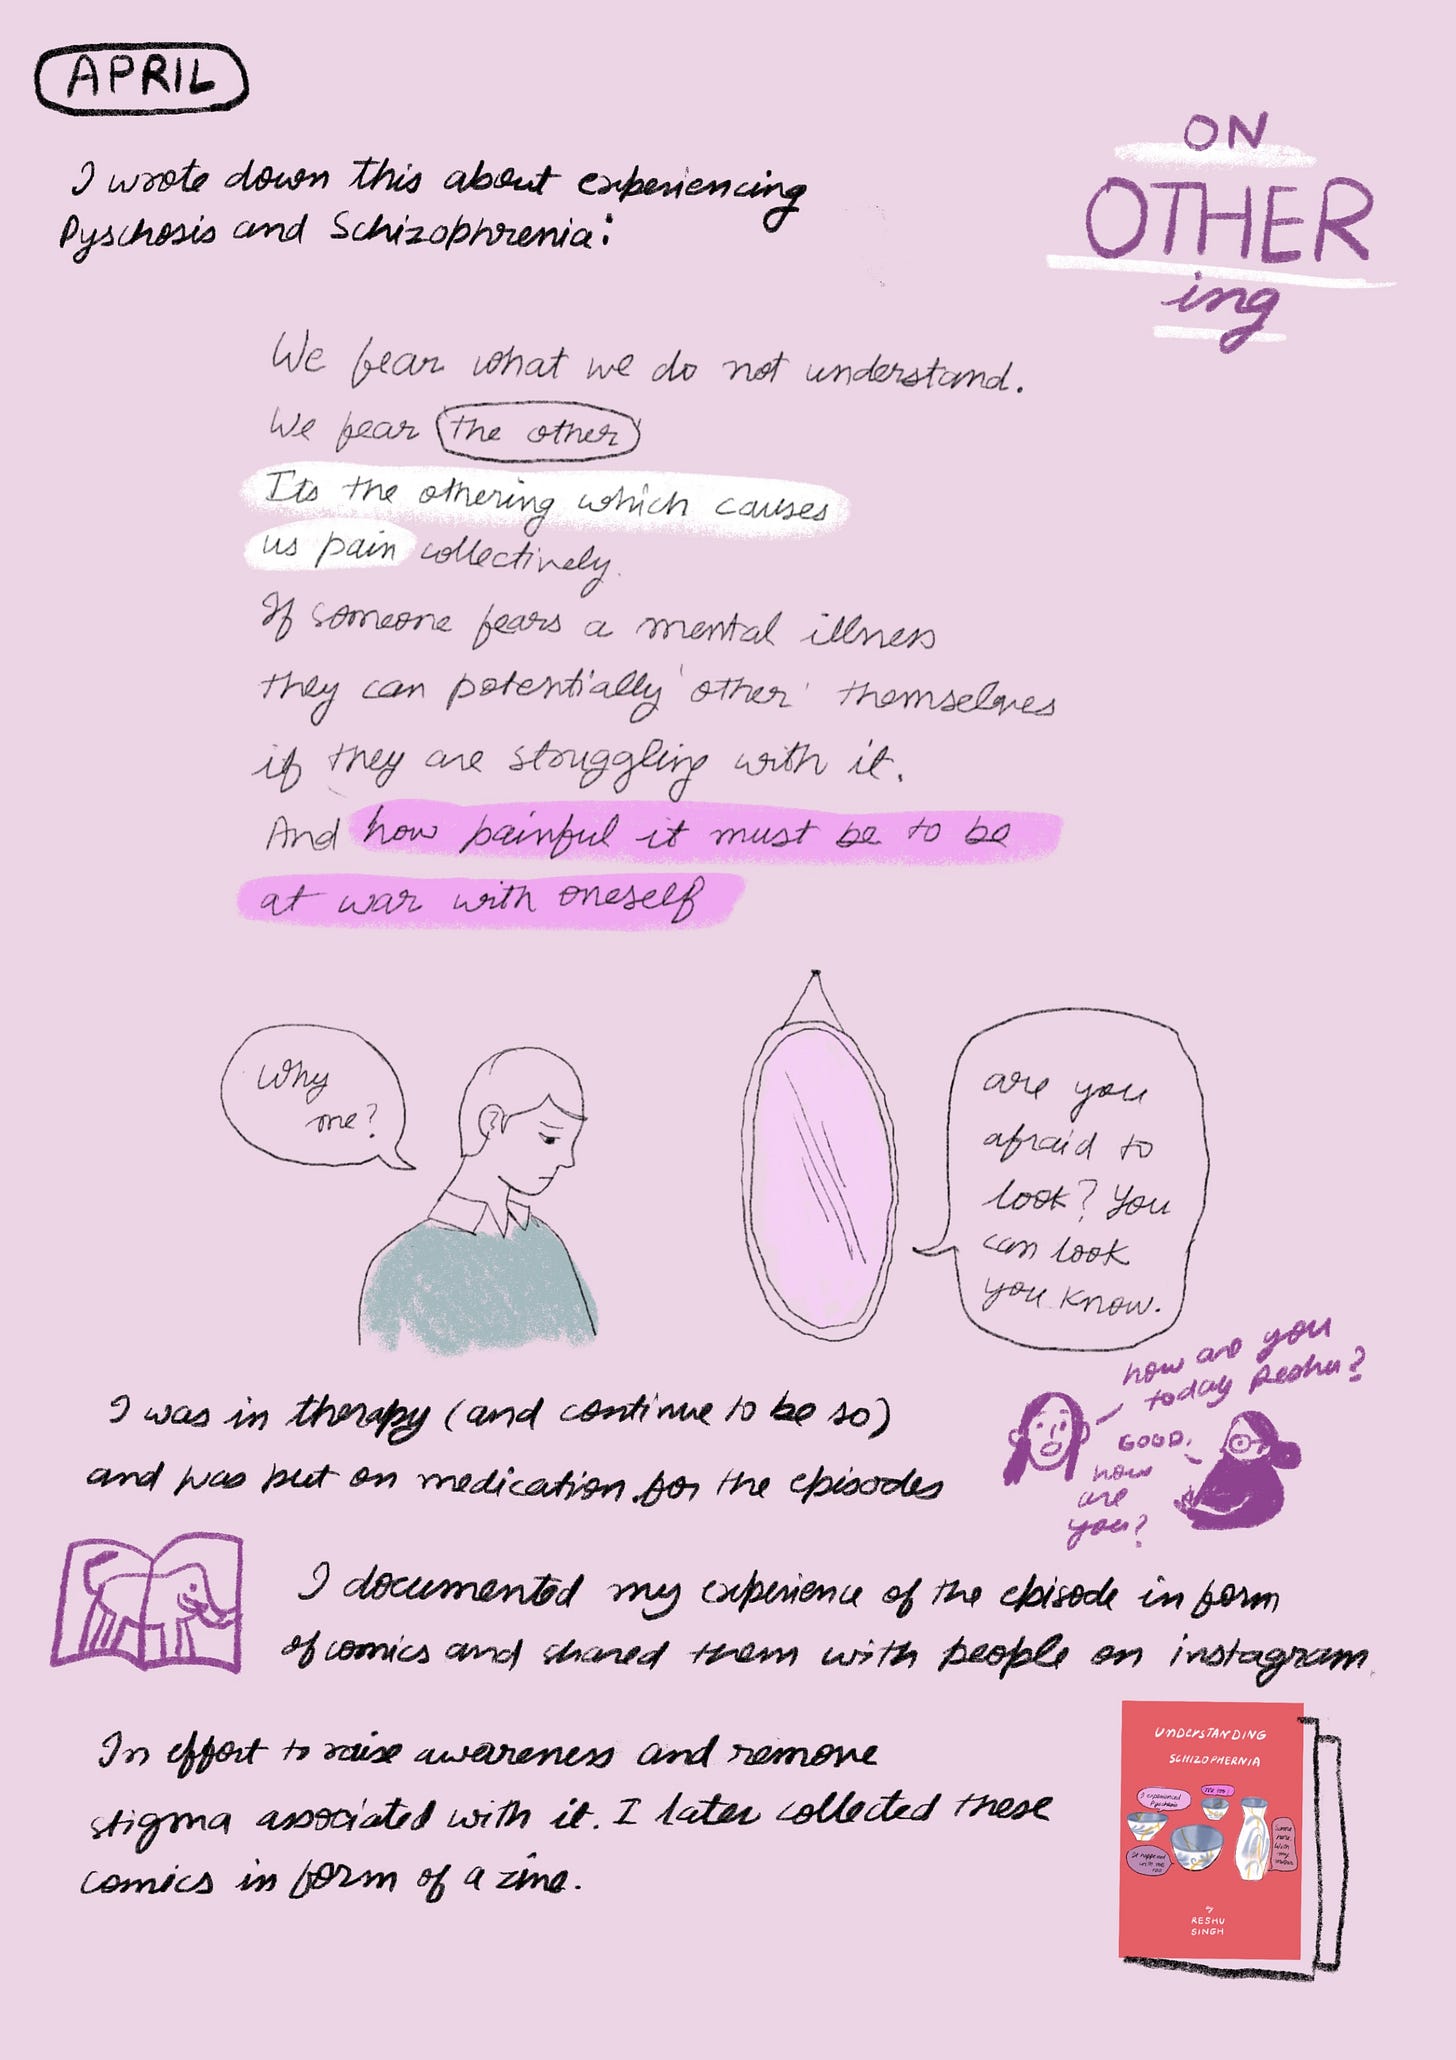 APRIL
ON
OTHER
ing
I wrote down this about experiencing
Pyschosis and Schizophrenia:
We fear what we do not understand.
We fear the other
Its the othering which causes
us pain collectively.
If someone fears a mental illness
they can potentially 'other' themselves
if they are struggling with it.
And how painful it must be to be
at war with oneself
Why
me?
are you
afraid to
look? You
can look
you know.
I was in therapy (and continue to be so)
and was put on medication for the episodes
how are you
today Reshu?
GOOD.
how
are
you?
I documented my experience of the episode in form
of comics and shared them with people on instagram
In effort to raise awareness and remove
stigma associated with it. I later collected these
comics in form of a zine.
UNDERSTANDING
SCHIZOPHERNIA
I experienced
Pyschosis
me too!
It happened
with me
too
Same
here.
With
my
by
RESHU
SINGH